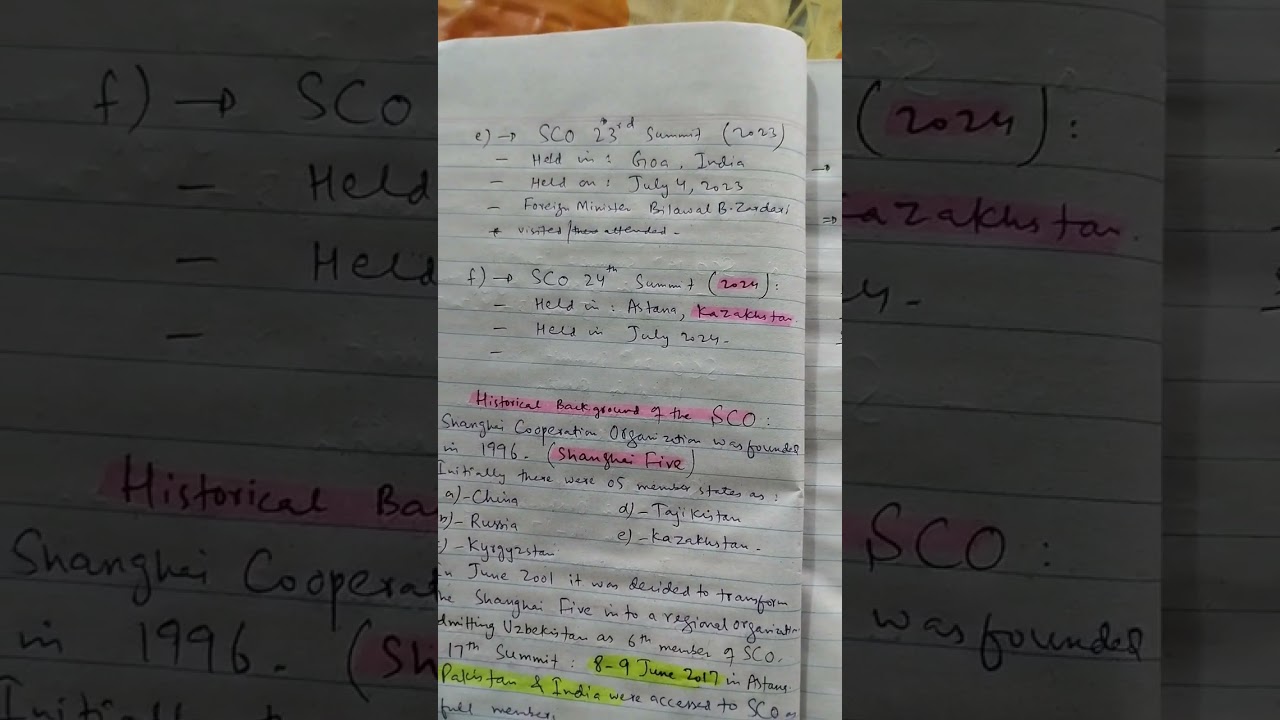 e) → SCO 23rd Summit (2023)
- Held in : Goa, India
- Held on : July 4, 2023
- Foreign Minister Bilawal B. Zardari
* visited/ attended.
f) → SCO 24th Summit (2024) :
- Held in : Astana, Kazakhstan.
- Held in July 2024.
-
Historical Background of the SCO :
Shanghai Cooperation Organization was founded
in 1996. (Shanghai Five)
Initially there were 05 member states as :
a)- China
d)- Tajikistan
b)- Russia
e)- Kazakhstan.
)- Kyrgyzstan
In June 2001 it was decided to transform
the Shanghai Five in to a regional organization
admitting Uzbekistan as 6th member of SCO.
17th Summit : 8-9 June 2017 in Astana
Pakistan & India were accessed to SCO as
full member